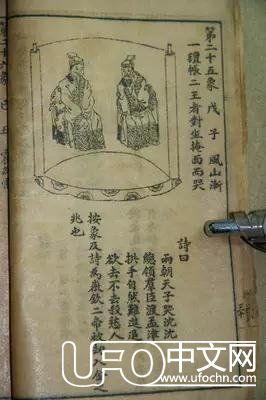 第二十五象　戊子　風山漸
一壇帳二王者對坐掩面而哭
詩曰
兩朝天子哭沈沈
總領羣臣渡孟津
拱手自然難進退
欲去不去殺愁人
按象及詩為徽欽二帝被
兆也
UFO中文网
www.ufochn.com